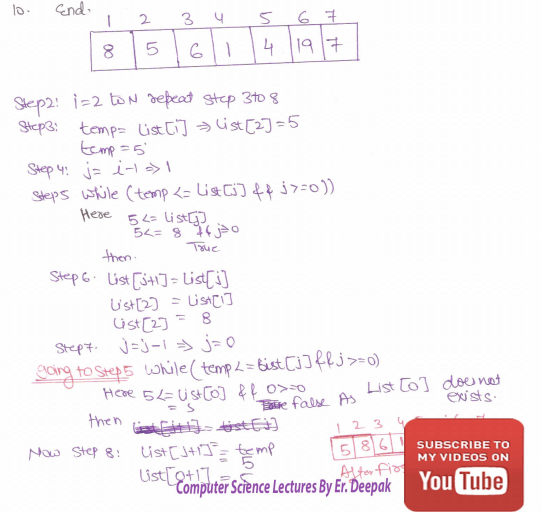 10. End.
1 2 3 4 5 6 7
8 5 6 1 4 19 7
Step2: i=2 to N repeat step 3 to 8
Step3: temp= List[i] ⇒ List[2]=5
temp=5
Step 4: j= i-1 ⇒ 1
Step5 while (temp <= List[j] && j>=0))
Here 5<= List[j]
5<= 8 && j≥0
True
then.
Step 6. List[j+1]=List[j]
List[2] = List[1]
List[2] = 8
Step7. j=j-1 ⇒ j=0
going to Step5 while(temp<=List[j]&&j>=0)
Here 5<=List[0] && 0>=0
false As List[0] does not exists.
then
1 2 3 4
5 8 6 1
Now Step 8: List[j+1]= temp
= 5
List[0+1] =
After firs
Computer Science Lectures By Er. Deepak
SUBSCRIBE TO
MY VIDEOS ON
YouTube